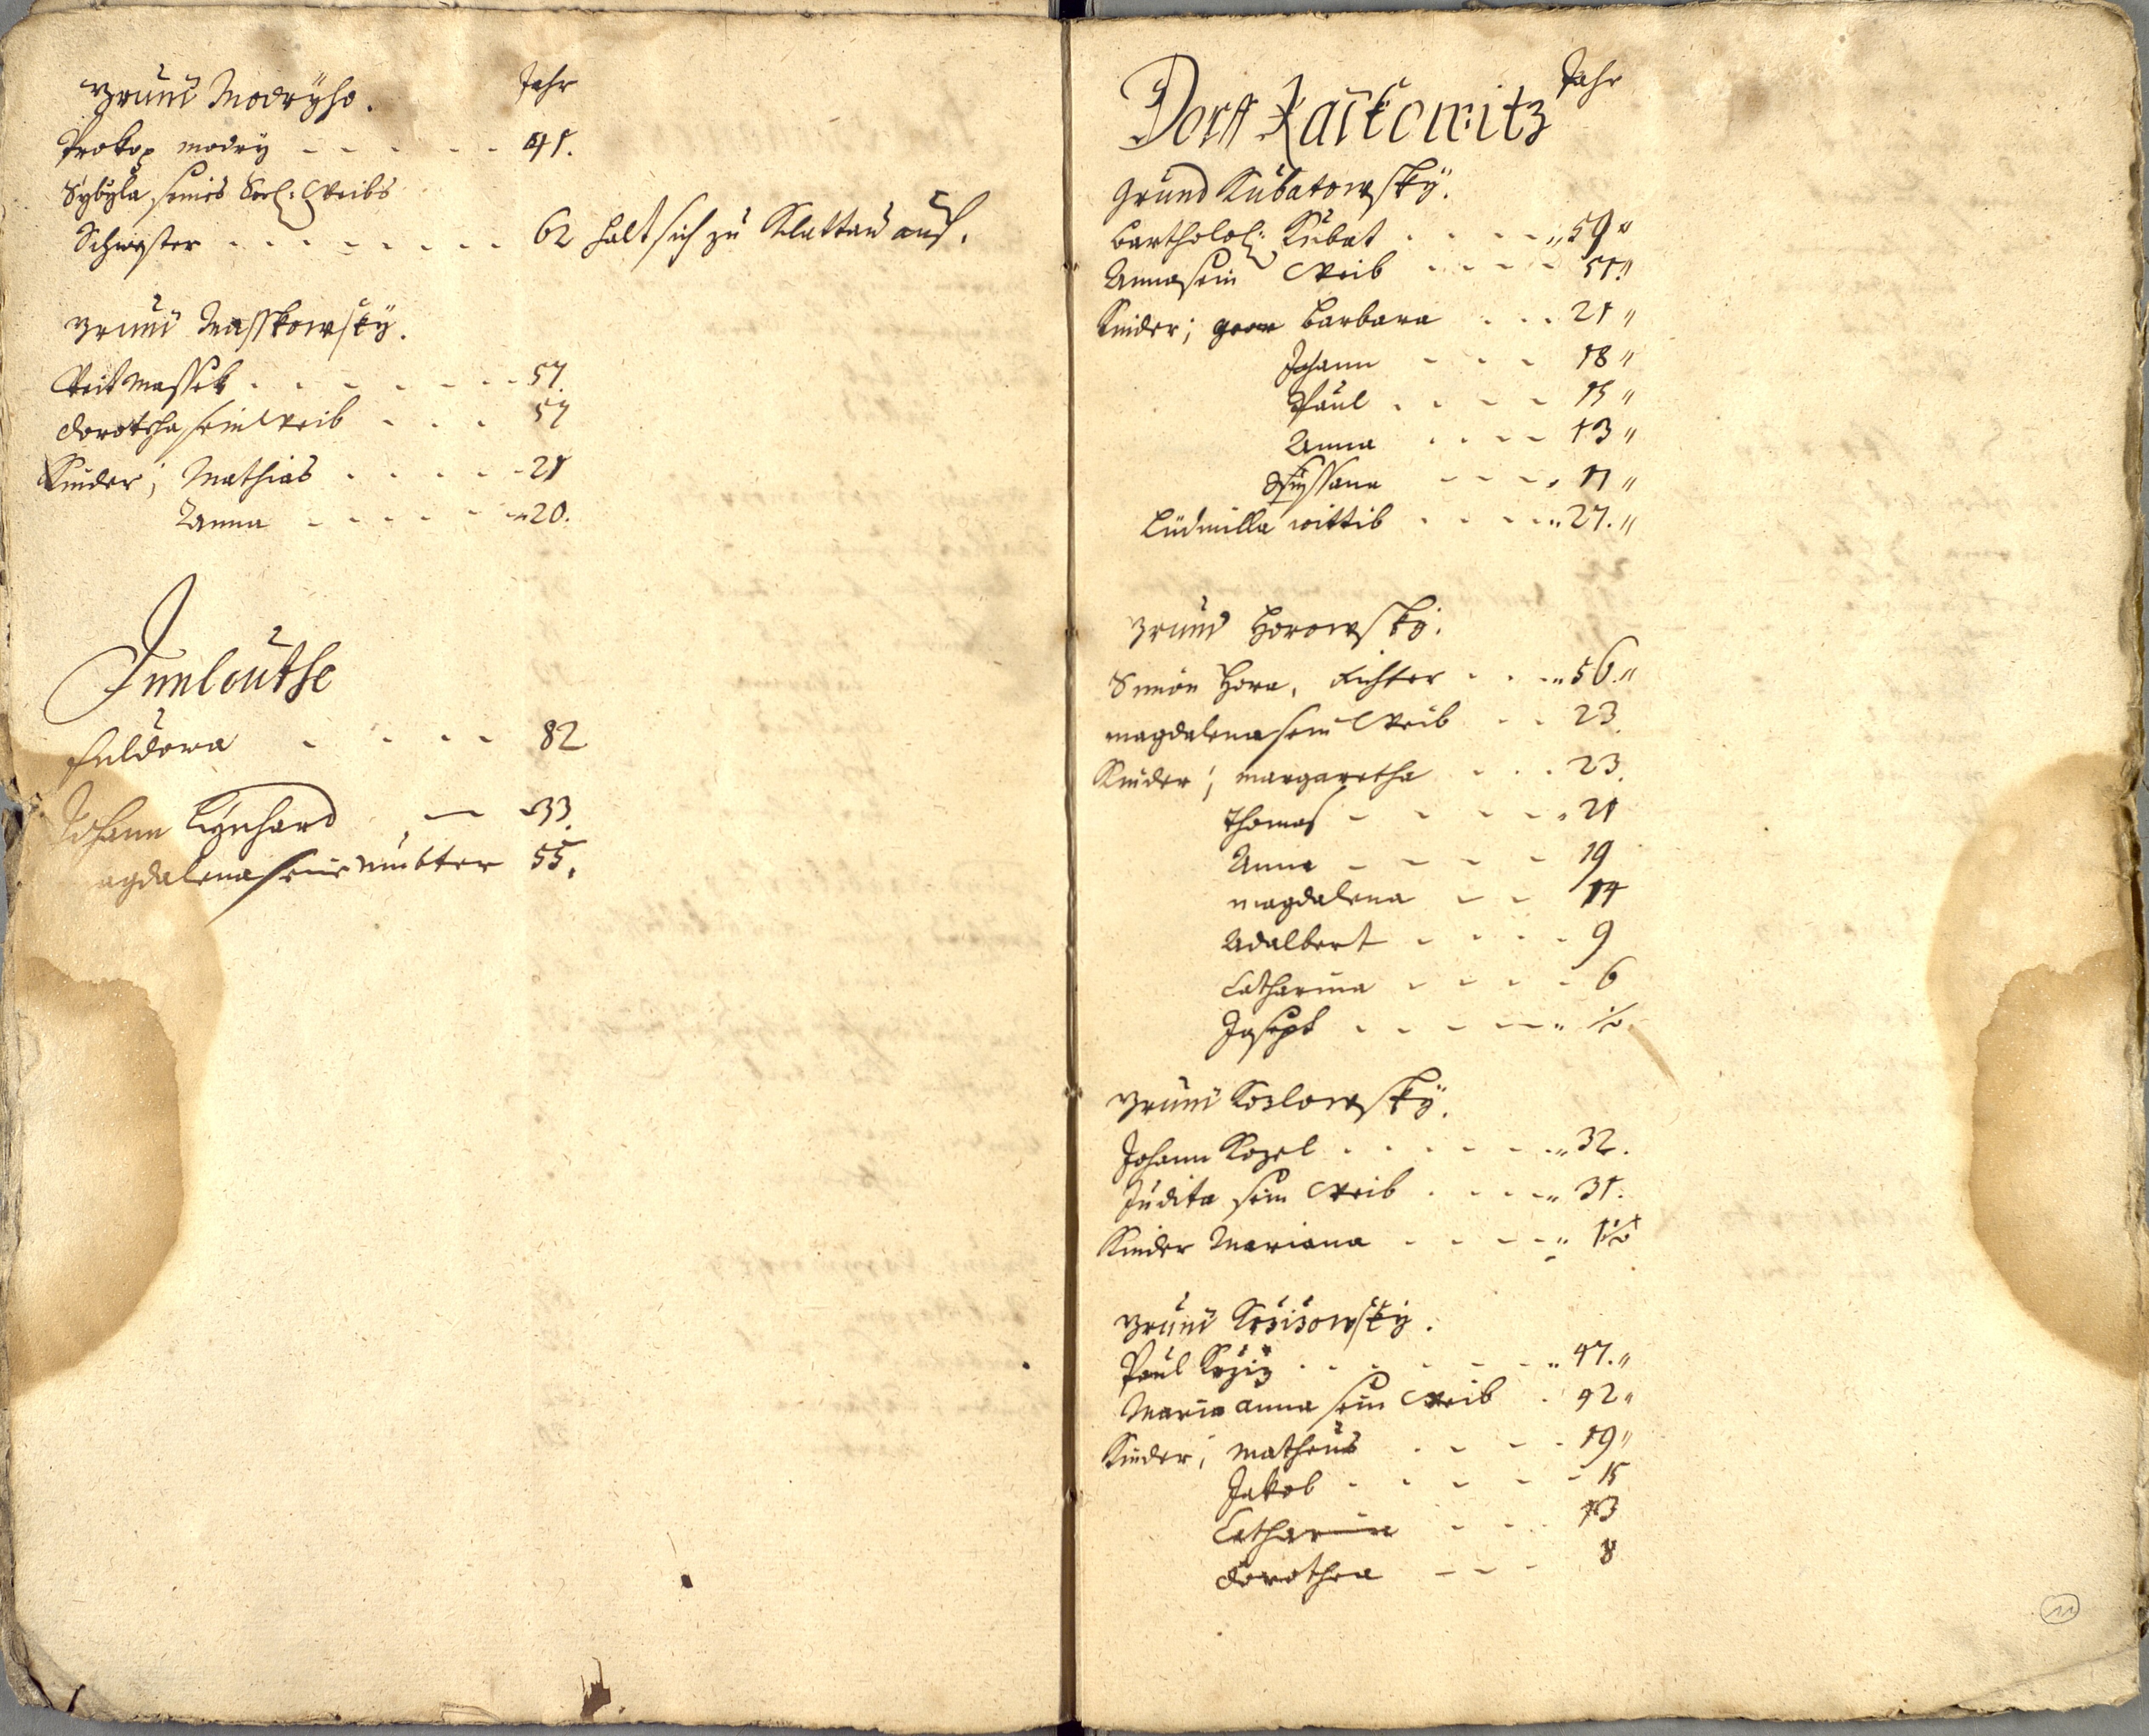 Grund Modrÿho. Jahr
Prokop modrÿ - - - - - 41.
Sÿbÿla, seines Seel: Weibs
Schwester . . . . . . . . 62 halt sich zu Klattau auf.
Grund Masskowskÿ.
Veit Massek . . . . . . . 57.
Dorothea sein Weib . . . 57
Kinder; Mathias . . . . . 21
Anna - - - - - 20.
Innleuthe
- - - - 82
Johann Lÿnhard — 33.
agdalena seine Mutter 55.
Dorff Jahr
Grund Kubatowskÿ.
Bartholol: Kubat . . . . 59 "
Anna sein Weib . . . . 51 "
Kinder; Barbara . . . 21 "
Johann - - - - 18 "
Paul . - - - 15 "
Anna . . . . 13 "
- - - - 11 "
Ludmilla wittib . . . . 27. "
Grund Horowskÿ.
Simon Hora, Richter . . . 56. "
Magdalena sein Weib . . 23.
Kinder; Margaretha . . . 23.
Thomas - - - - - 21
Anna - - - - 19
Magdalena - - 14
Adalbert - - - - 9
Catharina - - - - 6
Joseph . - - - -
Grund Kozlowskÿ.
Johann Kozel . . . . . . 32.
Judita sein Weib . . . . 31.
Kinder Mariana . . . . .
Grund Krzizowskÿ.
Paul Krziz . . . . . . . 47. "
Maria Anna sein Weib . 42 "
Kinder; Matheus . . . . 19 "
Jakob . . . . . 15
Catharina - - . 13
Dorothea - - - 8
11